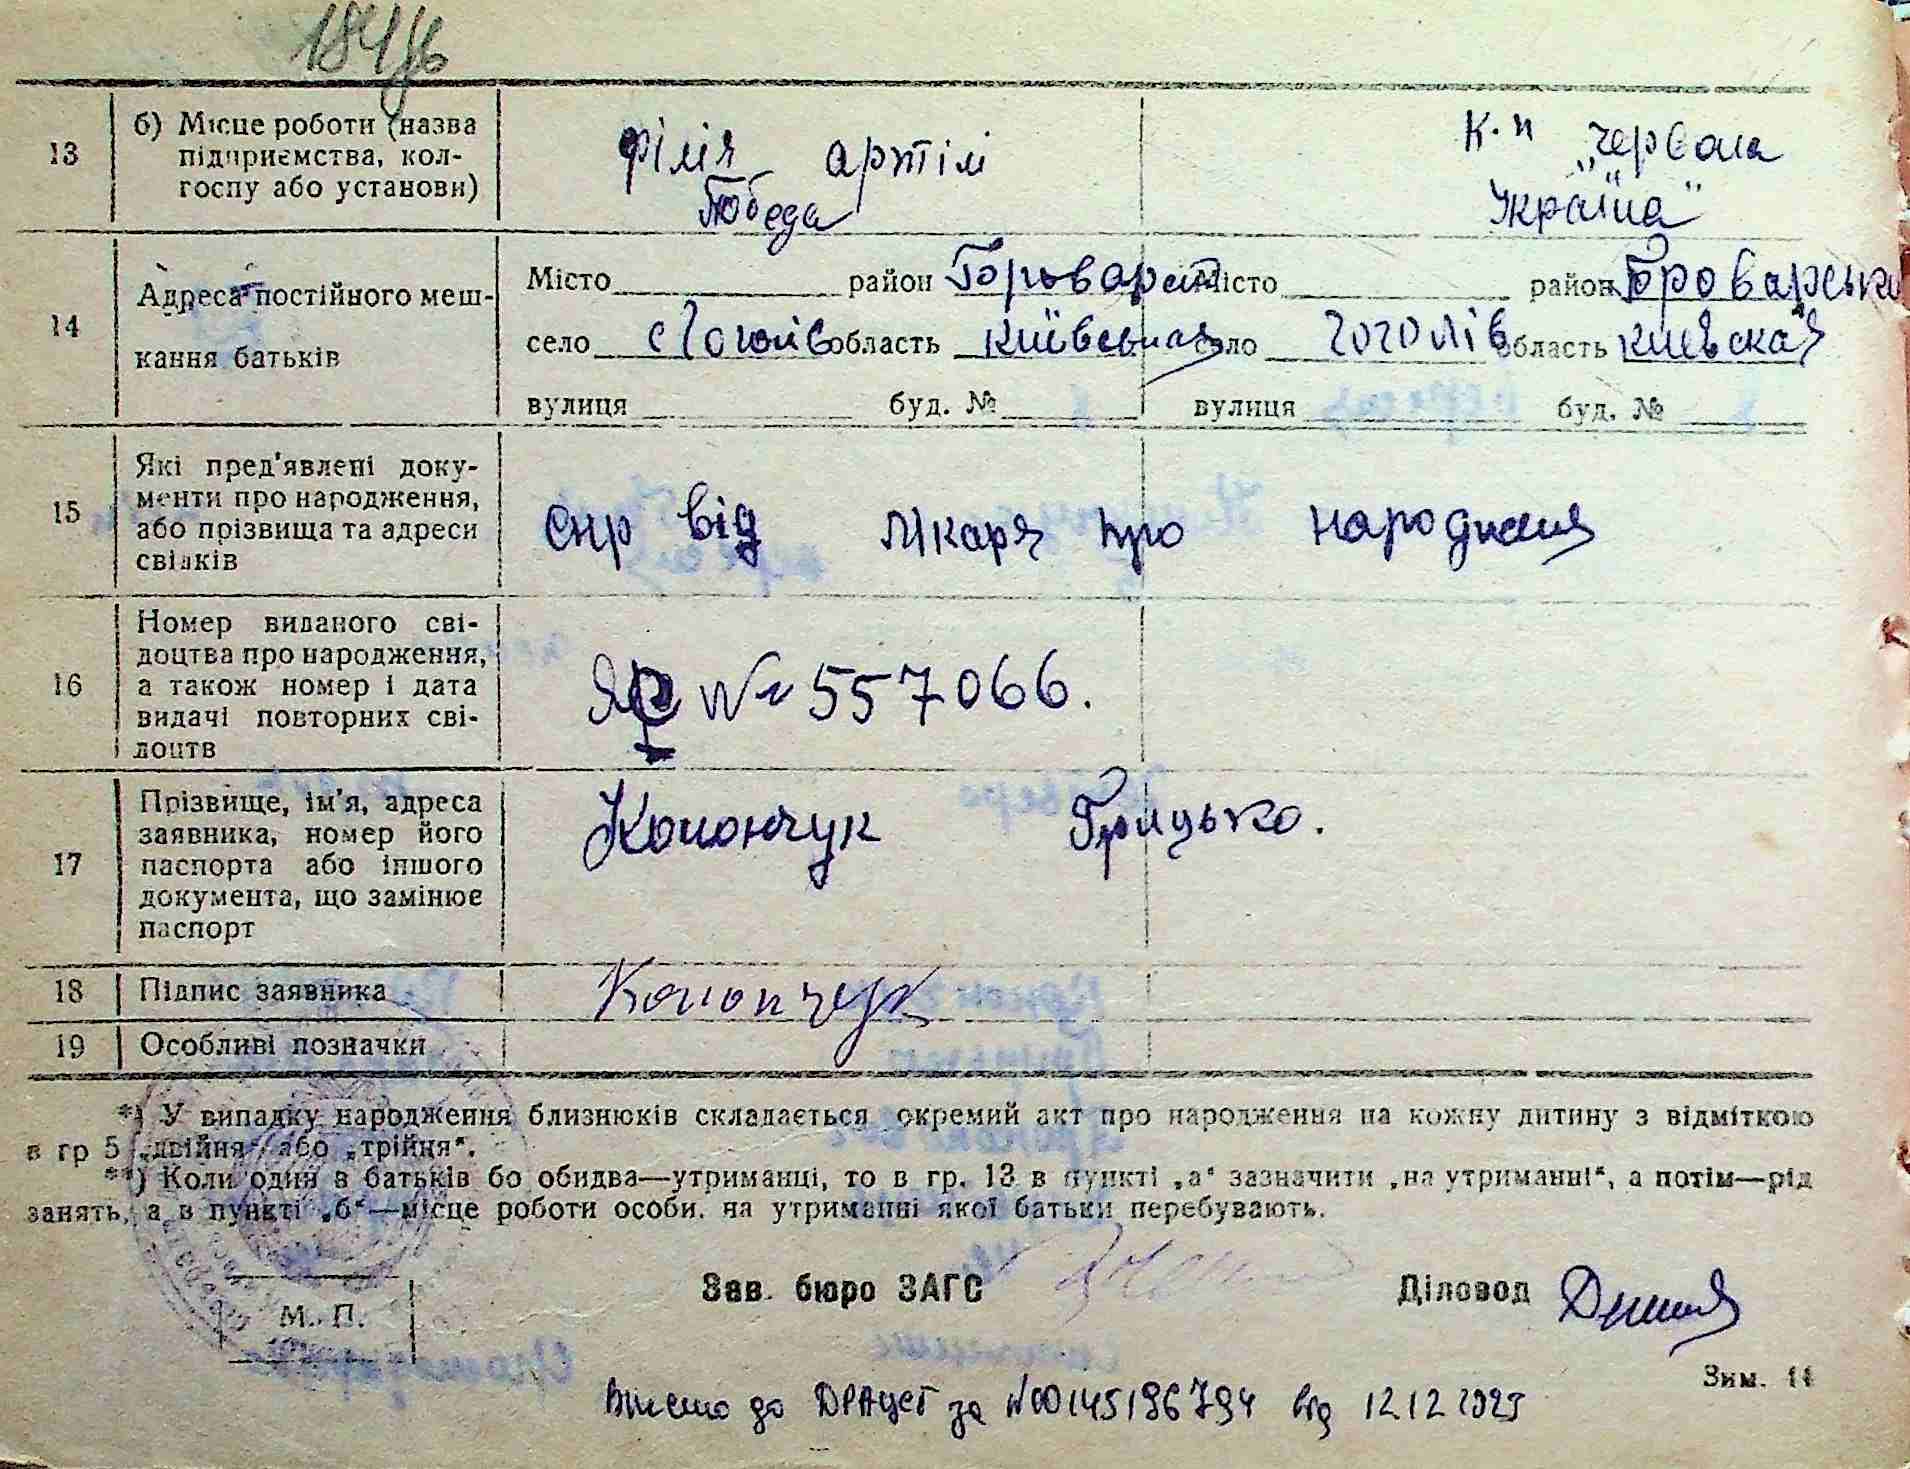 184
13
б) Місце роботи (назва
підприємства, кол-
госпу або установи)
філія артілі
Победа
к. п „червона
Україна"
14
Адреса постійного меш-
кання батьків
Місто район Броварск
село с Гоголів область київская
вулиця буд. №
Місто район Броварська
село гоголів область киевская
вулиця буд. №
15
Які пред'явлені доку-
менти про народження,
або прізвища та адреси
свідків
спр від лікаря про народження
16
Номер виданого сві-
доцтва про народження,
а також номер і дата
видачі повторних сві-
доцтв
ЯР № 557066.
17
Прізвище, ім'я, адреса
заявника, номер його
паспорта або іншого
документа, що замінює
паспорт
Конончук Грицько.
18
Підпис заявника
Конончук
19
Особливі позначки
*) У випадку народження близнюків складається окремий акт про народження на кожну дитину з відміткою
в гр 5 „двійня" або „трійня".
**) Коли один з батьків бо обидва—утриманці, то в гр. 13 в пункті „а" зазначити „на утриманні", а потім—рід
занять, а в пункті „б"—місце роботи особи. на утриманні якої батьки перебувають.
М. П.
Зав. бюро ЗАГС
Діловод
Зим. 11
Внесено до ДРАЦСГ за №00145196794 від 12.12.2025